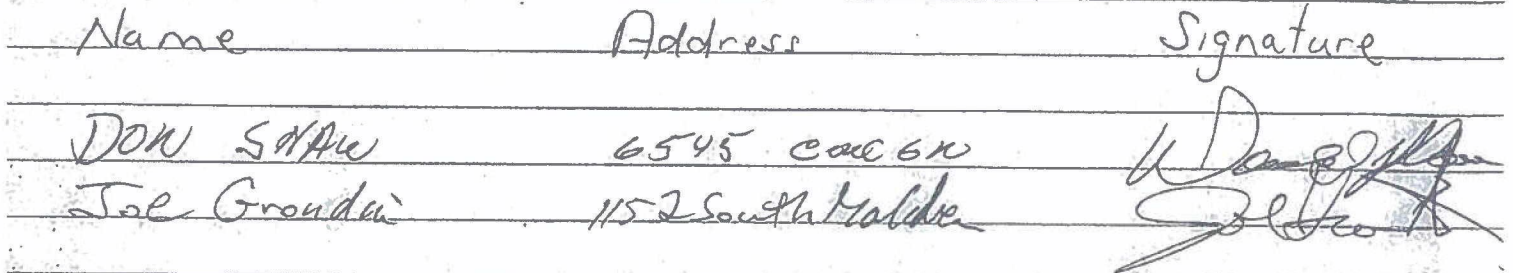 Name Address Signature
DON SHAW 6545 CONC 6N
Joe Grondin 1152 South Malden